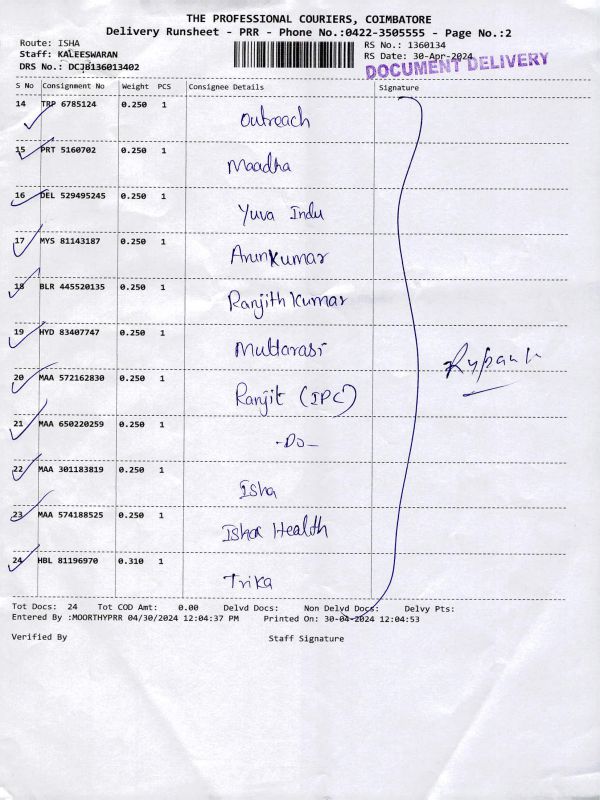 THE PROFESSIONAL COURIERS, COIMBATORE
Delivery Runsheet - PRR - Phone No.:0422-3505555 - Page No.:2
Route: ISHA RS No.: 1360134
Staff: KALEESWARAN RS Date: 30-Apr-2024
DRS No.: DCJB136013402 DOCUMENT DELIVERY
S No Consignment No Weight PCS Consignee Details Signature
14 TRP 6785124 0.250 1 Outreach
15 PRT 5160702 0.250 1 Maadha
16 DEL 529495245 0.250 1 Yuva Indu
17 MYS 81143187 0.250 1 Arunkumar
18 BLR 445520135 0.250 1 Ranjith Kumar
19 HYD 83407747 0.250 1 Muttarasi
20 MAA 572162830 0.250 1 Ranjit (IPC)
21 MAA 650220259 0.250 1 -Do-
22 MAA 301183819 0.250 1 Isha
23 MAA 574188525 0.250 1 Isha Health
24 HBL 81196970 0.310 1 Trika
Tot Docs: 24 Tot COD Amt: 0.00 Delvd Docs: Non Delvd Docs: Delvy Pts:
Entered By :MOORTHYPRR 04/30/2024 12:04:37 PM Printed On: 30-04-2024 12:04:53
Verified By Staff Signature